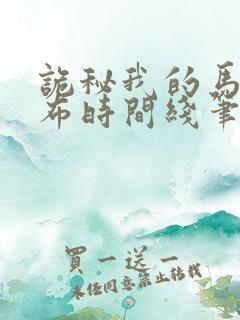 詭秘我的馬
布時間綫筆
買一送一
未任同意禁止轉載